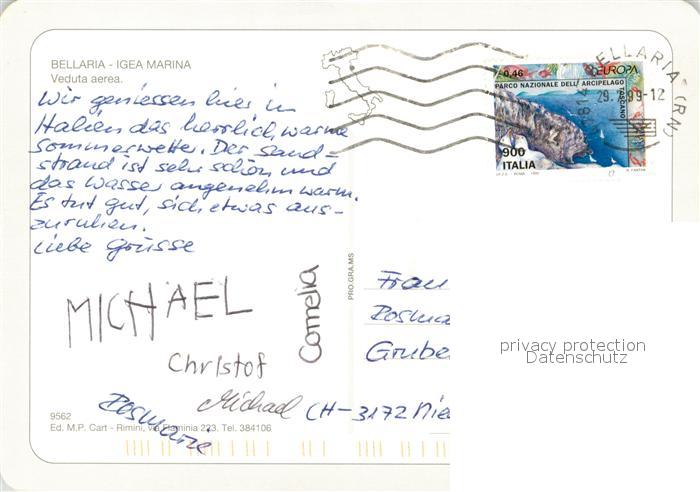 BELLARIA - IGEA MARINA
Veduta aerea.
Wir geniessen hier in
Italien das herrlich warme
Sommerwetter. Der Sand=
strand ist sehr schön und
das Wasser angenehm warm.
Es tut gut, sich etwas aus-
zuruhen.
Liebe Grüsse
MICHAEL
Christof
Cornelia
Michael
Rosmarie
9562
Ed. M.P. Cart - Rimini, via Flaminia 223. Tel. 384106
PRO.GRA.MS
0,46 EUROPA
PARCO NAZIONALE DELL'ARCIPELAGO
TOSCANO
900
ITALIA
BELLARIA (RN)
29. 99-12
Frau
Rosma
Grube
CH-3172 Nie
privacy protection
Datenschutz